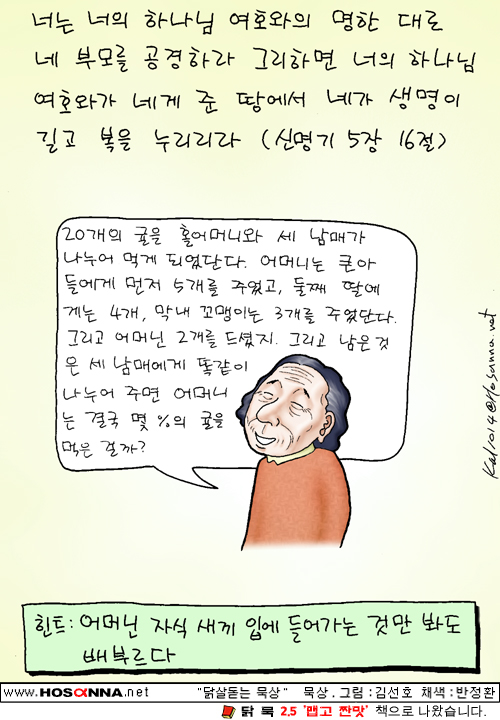 너는 너의 하나님 여호와의 명한 대로
네 부모를 공경하라 그리하면 너의 하나님
여호와가 네게 준 땅에서 네가 생명이
길고 복을 누리리라 (신명기 5장 16절)
20개의 귤을 홀어머니와 세 남매가
나누어 먹게 되었단다. 어머니는 큰아
들에게 먼저 5개를 주었고, 둘째 딸에
게는 4개, 막내 꼬맹이는 3개를 주었단다.
그리고 어머닌 2개를 드셨지. 그리고 남은 것
은 세 남매에게 똑같이
나누어 주면 어머니
는 결국 몇 %의 귤을
먹은 걸까?
Kal1014@Hosanna.net
힌트: 어머닌 자식 새끼 입에 들어가는 것만 봐도
배부르다
www.HOSANNA.net "닭살돋는 묵상" 묵상.그림:김선호 채색:반정환
닭 묵 2.5 '맵고 짠맛' 책으로 나왔습니다.